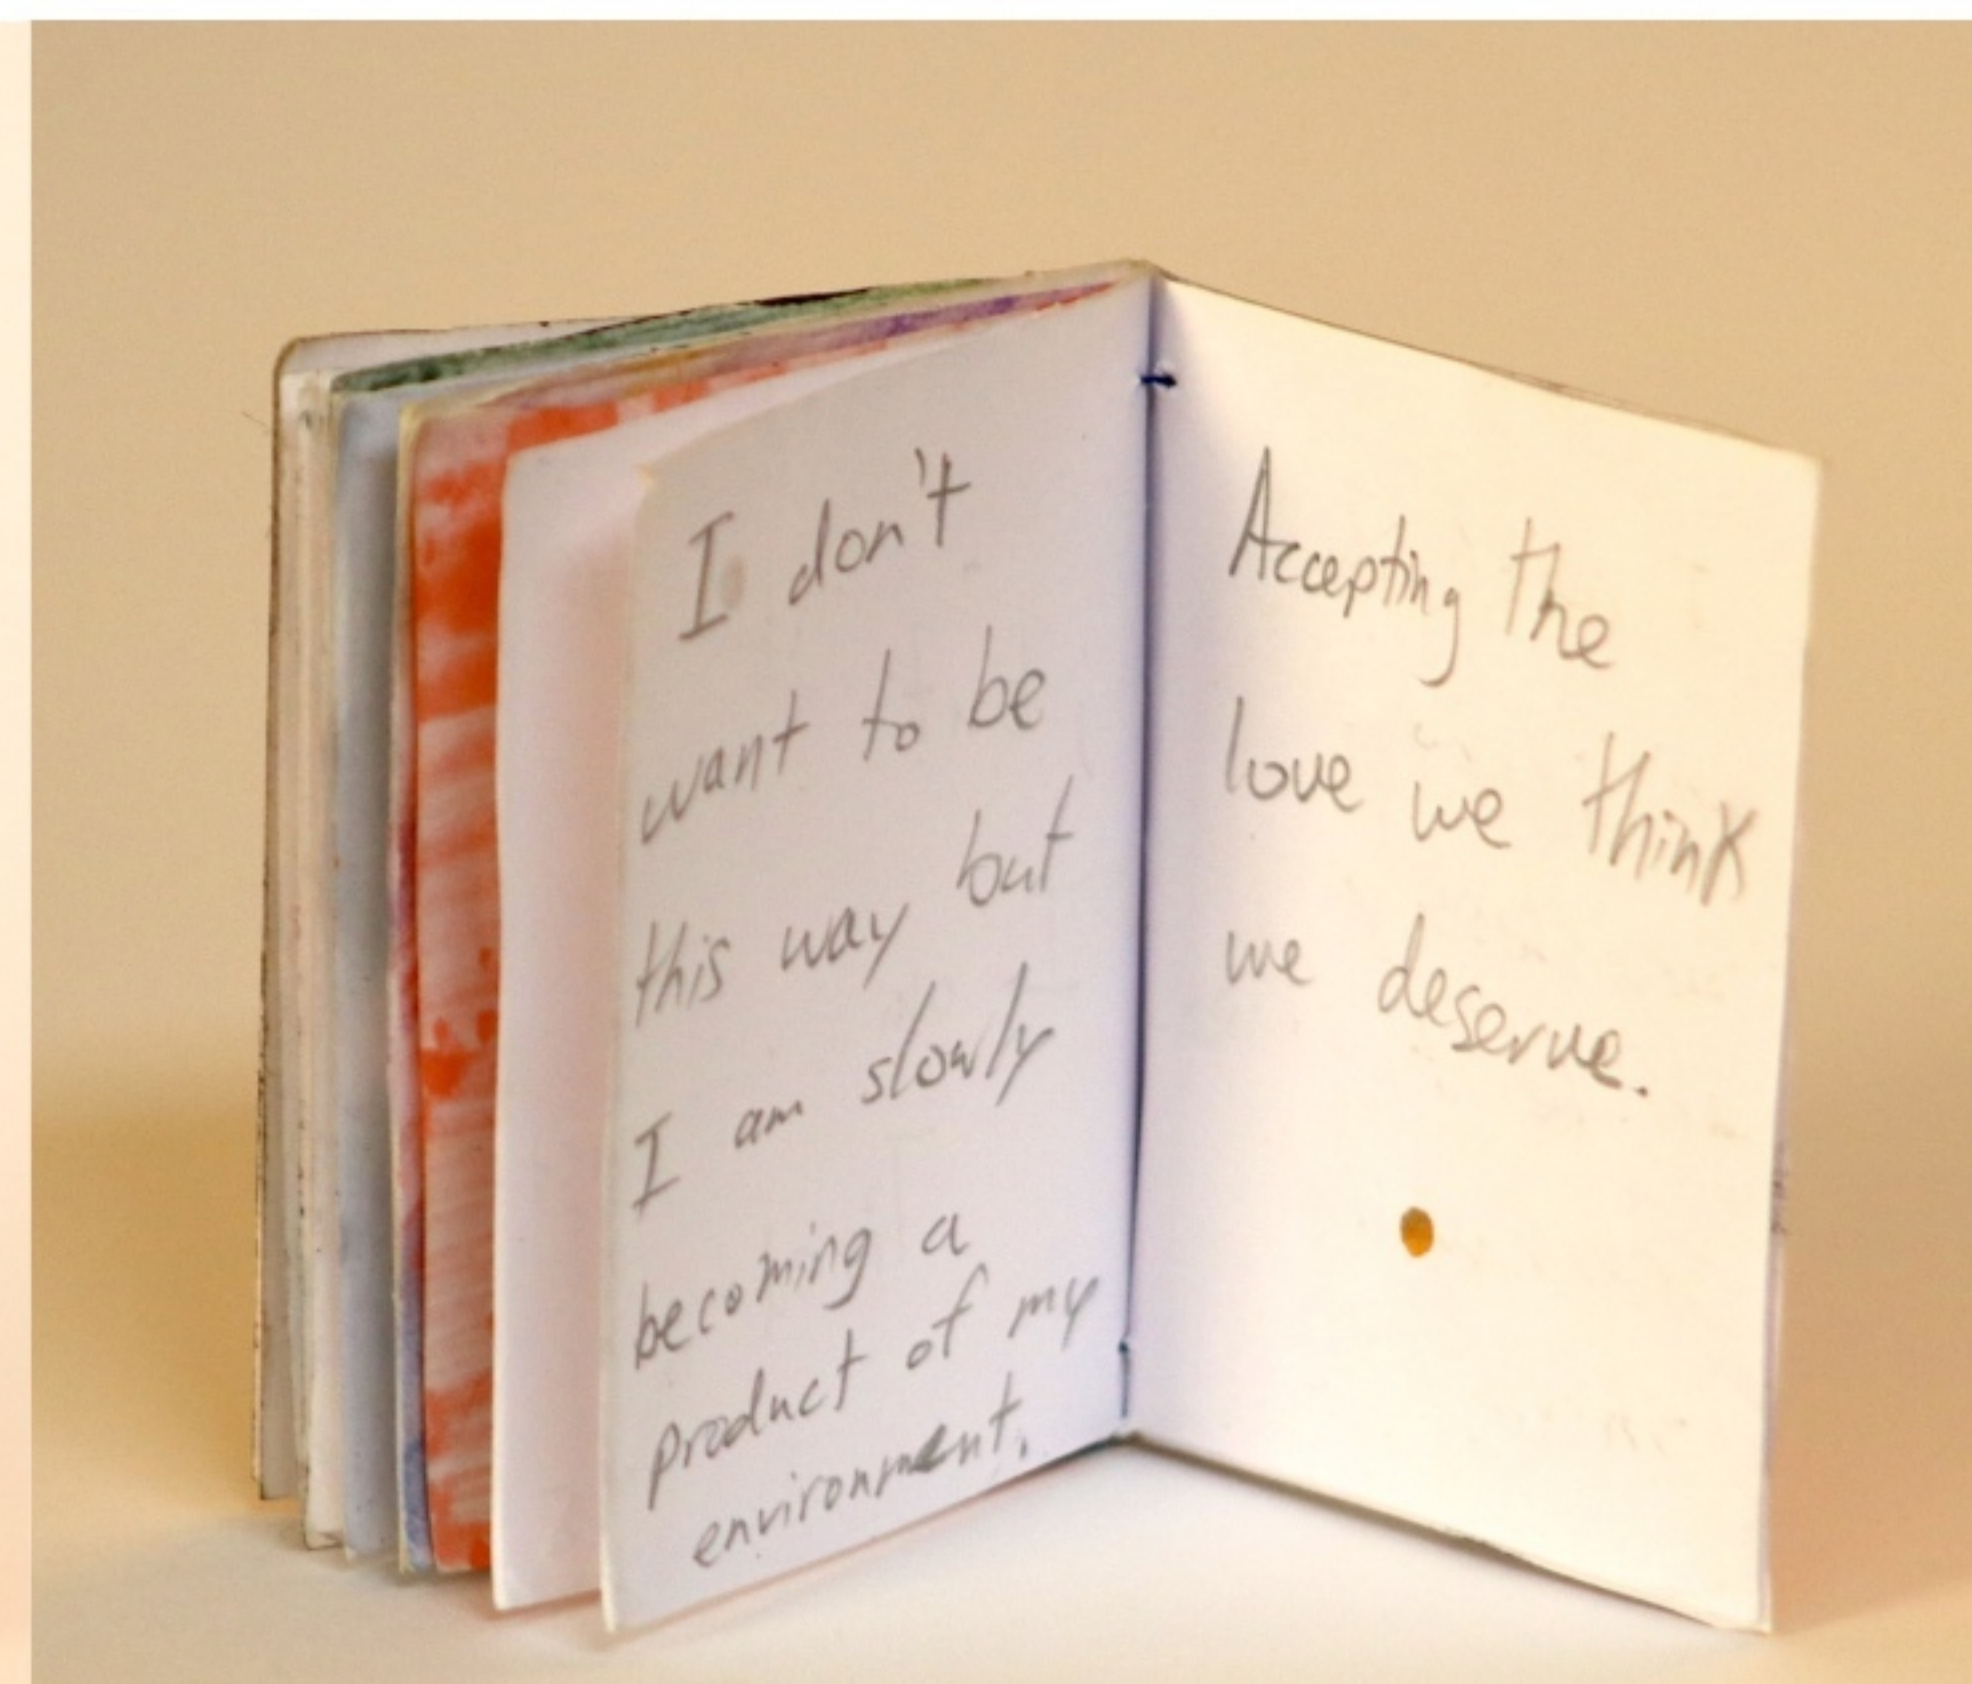 I don't
want to be
this way but
I am slowly
becoming a
product of my
environment.
Accepting the
love we think
we deserve.